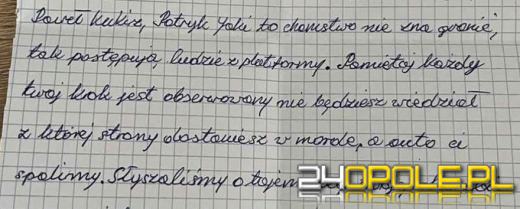 Paweł Kukiz, Patryk Jaki to chamstwo nie zna granic,
tak postępują ludzie z platformy. Pamiętaj każdy
twój krok jest obserwowany nie będziesz wiedział
z której strony dostaniesz w mordę, a auto ci
spalimy. Słyszeliśmy o
24OPOLE.PL